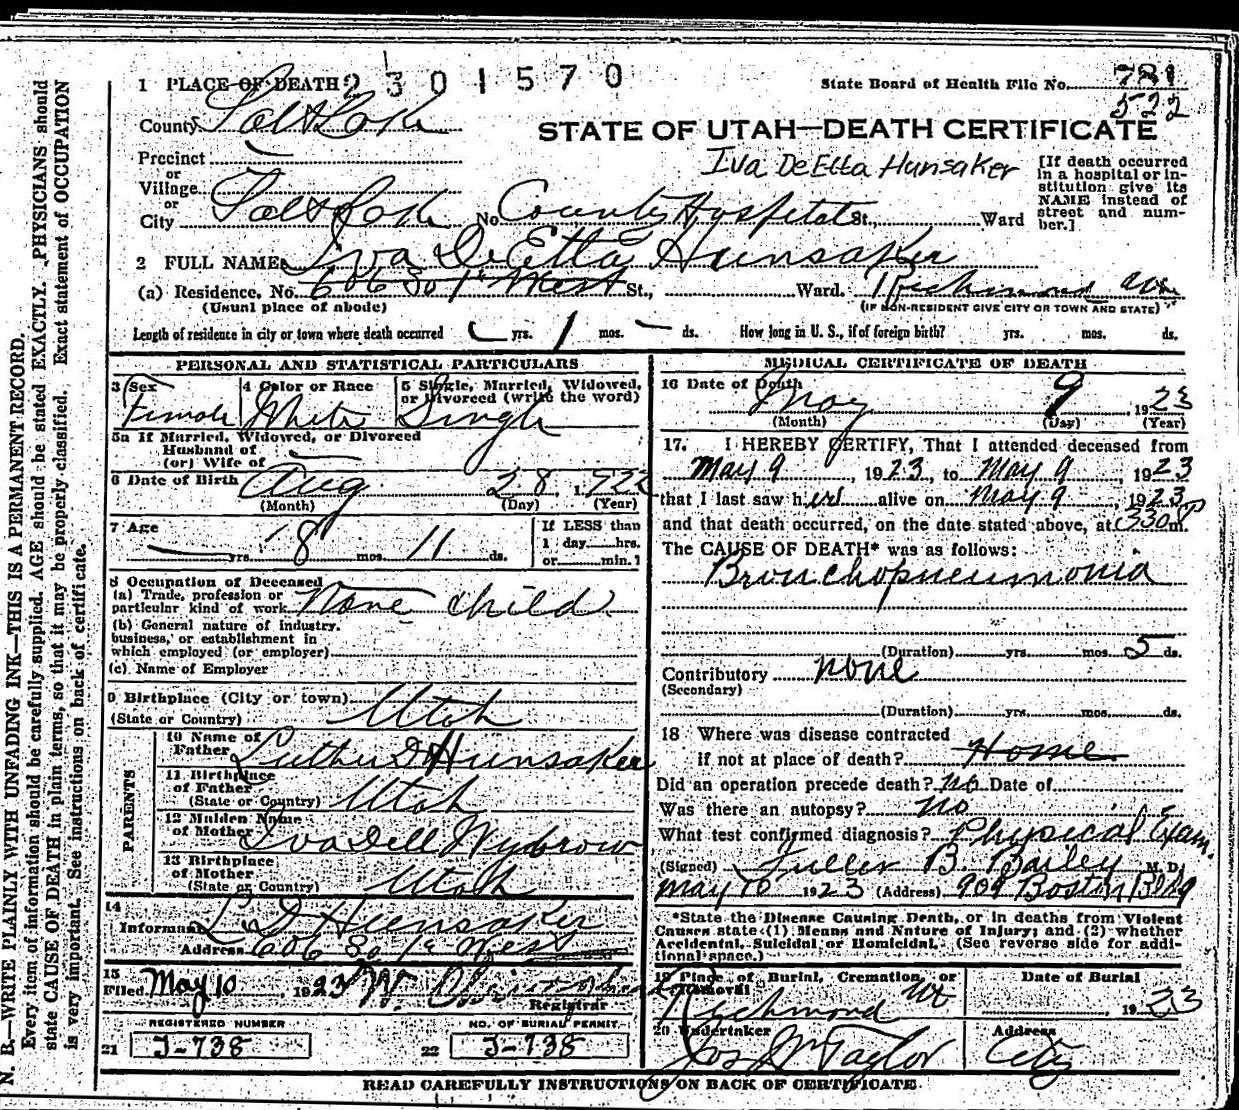 N. B.—WRITE PLAINLY WITH UNFADING INK—THIS IS A PERMANENT RECORD.
Every item of information should be carefully supplied. AGE should be stated EXACTLY. PHYSICIANS should
state CAUSE OF DEATH in plain terms, so that it may be properly classified. Exact statement of OCCUPATION
is very important. See instructions on back of certificate.
1 PLACE OF DEATH 2 3 0 1 5 7 0
State Board of Health File No. 781
522
County Salt Lake
STATE OF UTAH—DEATH CERTIFICATE
Iva DeEtta Hunsaker
Precinct
or
Village
or
City Salt Lake No. County Hospital St., Ward
[If death occurred
in a hospital or in-
stitution give its
NAME instead of
street and num-
ber.]
2 FULL NAME Iva DeEtta Hunsaker
(a) Residence. No. 606 So 1st West St., Ward. Richmond
(Usual place of abode)
(IF NON-RESIDENT GIVE CITY OR TOWN AND STATE)
Length of residence in city or town where death occurred — yrs. 1 mos. — ds. How long in U. S., if of foreign birth? yrs. mos. ds.
PERSONAL AND STATISTICAL PARTICULARS
3 Sex Female
4 Color or Race White
5 Single, Married, Widowed,
or Divorced (write the word) Single
5a If Married, Widowed, or Divorced
Husband of
(or) Wife of —
6 Date of Birth Aug 28 1922
(Month) (Day) (Year)
7 Age — yrs. 8 mos. 11 ds.
If LESS than
1 day hrs.
or min.?
8 Occupation of Deceased
(a) Trade, profession or
particular kind of work None child
(b) General nature of industry,
business, or establishment in
which employed (or employer)
(c) Name of Employer
9 Birthplace (City or town)
(State or Country) Utah
PARENTS
10 Name of
Father Luther D Hunsaker
11 Birthplace
of Father
(State or Country) Utah
12 Maiden Name
of Mother Iva Dell Wybrow
13 Birthplace
of Mother
(State or Country) Utah
14
Informant L D Hunsaker
Address 606 So 1st West
15
Filed May 10, 1923 W.
Registrar
REGISTERED NUMBER
21 J-738
NO. OF BURIAL PERMIT
22 J-738
MEDICAL CERTIFICATE OF DEATH
16 Date of Death
May 9 1923
(Month) (Day) (Year)
17. I HEREBY CERTIFY, That I attended deceased from
May 9, 1923, to May 9, 1923
that I last saw her alive on May 9, 1923
and that death occurred, on the date stated above, at 330 P m.
The CAUSE OF DEATH* was as follows:
Bronchopneumonia
(Duration) yrs. mos. 5 ds.
Contributory none
(Secondary)
(Duration) yrs. mos. ds.
18 Where was disease contracted
if not at place of death? Home
Did an operation precede death? no Date of
Was there an autopsy? no
What test confirmed diagnosis? Physical Exam.
(Signed) Fuller B. Bailey M. D.
May 10 1923 (Address) 909 Boston Bldg
*State the Disease Causing Death, or in deaths from Violent
Causes state (1) Means and Nature of Injury; and (2) whether
Accidental, Suicidal or Homicidal. (See reverse side for addi-
tional space.)
19 Place of Burial, Cremation, or
Removal Richmond Ut
Date of Burial
1923
20 Undertaker
Jos Wm Taylor
Address
City
READ CAREFULLY INSTRUCTIONS ON BACK OF CERTIFICATE